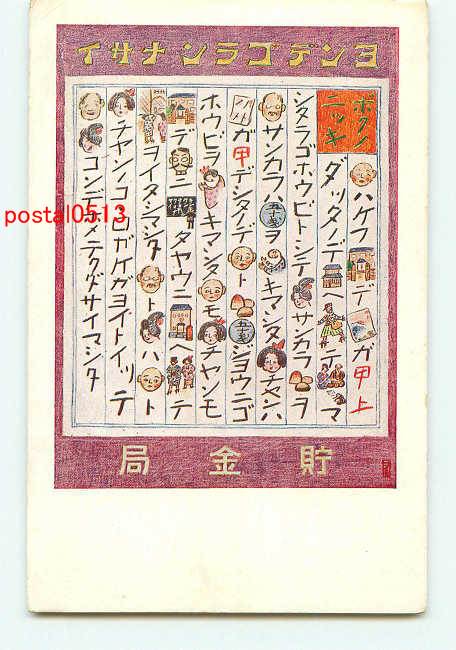 ヨンデゴランナサイ
ボクノ
ニッキ
ハケフデガ甲上
ダッタノデヘテマ
シタラゴホウビトシテサンカラヲ
サンカラハヲキマシタチャンハ
ガ甲デシタノデトジョウニゴ
ホウビヲキマシタモチャンモ
デニタヤウニテ
ヲイタシマシタトハト
チャンノココロガケガヨイトイッテ
コンデホメテクダサイマシタ
貯金局
postal0513